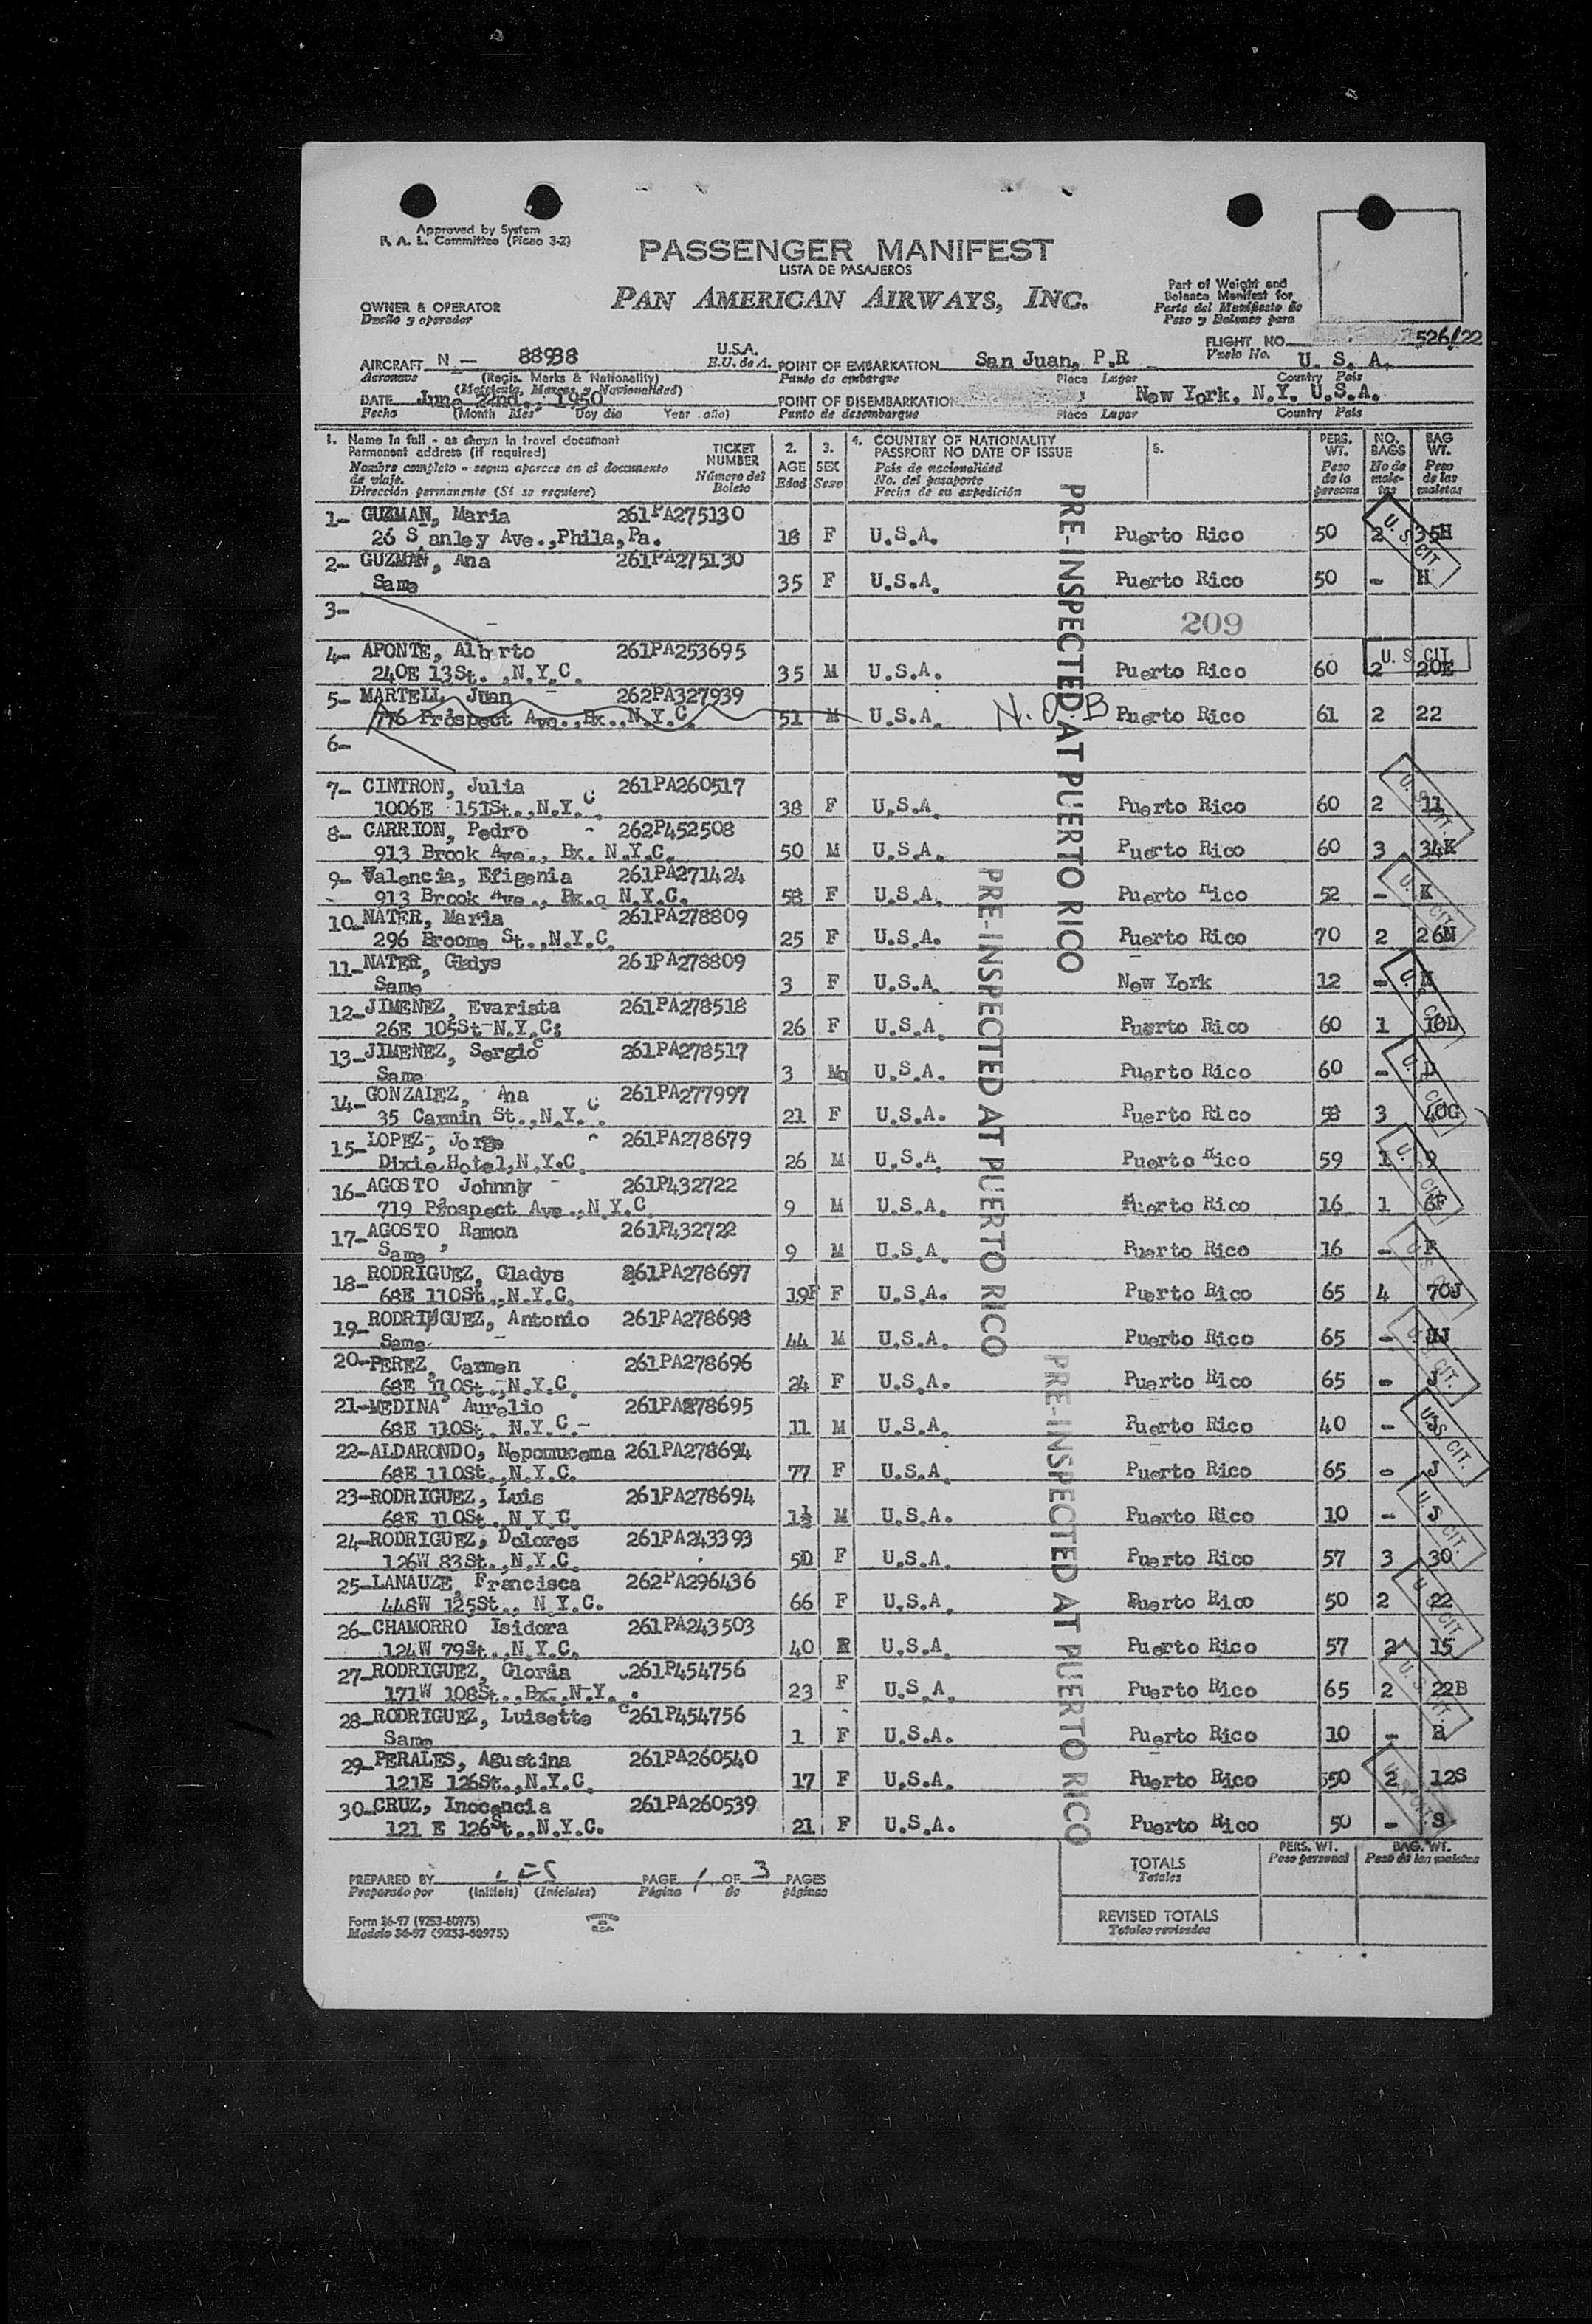 Approved by System
R. A. L. Committee (Picao 3-2)
PASSENGER MANIFEST
LISTA DE PASAJEROS
PAN AMERICAN AIRWAYS, INC.
OWNER & OPERATOR
Dueño y operador
Part of Weight and
Balance Manifest for
Parte del Manifiesto de
Peso y Balance para
FLIGHT NO. 526/22
Vuelo No.
AIRCRAFT N - 88938 U.S.A.
E.U. de A.
Aeronave (Regis. Marks & Nationality)
(Matricula, Marcas y Nacionalidad)
POINT OF EMBARKATION San Juan, P.R U. S. A.
Punto de embarque Place Lugar Country País
DATE June 22nd., 1950
Fecha (Month Mes Day dia Year año)
POINT OF DISEMBARKATION New York, N.Y. U.S.A.
Punto de desembarque Place Lugar Country País
1. Name in full - as shown in travel document
Permanent address (if required)
Nombre completo - segun aparece en el documento
de viaje.
Dirección permanente (Si se requiere)
TICKET
NUMBER
Número del
Boleto
2.
AGE
Edad
3.
SEX
Sexo
4. COUNTRY OF NATIONALITY
PASSPORT NO DATE OF ISSUE
País de nacionalidad
No. del pasaporte
Fecha de su expedición
5.
PERS.
WT.
Peso
de la
persona
NO.
BAGS
No de
male-
tas
BAG
WT.
Peso
de las
maletas
1- GUZMAN, Maria 261PA275130
26 S anley Ave.,Phila,Pa. 18 F U.S.A. Puerto Rico 50 2 35H
2- GUZMAN, Ana 261PA275130
Same 35 F U.S.A. Puerto Rico 50 - H
3-
209
4- APONTE, Alb rto 261PA253695
240E 13St. ,N.Y.C. 35 M U.S.A. Puerto Rico 60 2 20E
5- MARTELL, Juan 262PA327939
776 Prospect Ave.,Bx.,N.Y.C. 51 M U.S.A. N.O.B Puerto Rico 61 2 22
6-
7- CINTRON, Julia 261PA260517
1006E 151St.,N.Y.C 38 F U.S.A. Puerto Rico 60 2 11
8- CARRION, Pedro 262P452508
913 Brook Ave., Bx. N.Y.C. 50 M U.S.A. Puerto Rico 60 3 34K
9- Valencia, Efigenia 261PA271424
913 Brook Ave., Bx.q N.Y.C. 58 F U.S.A. Puerto Rico 52 - K
10-NATER, Maria 261PA278809
296 Broome St.,N.Y.C. 25 F U.S.A. Puerto Rico 70 2 26N
11-NATER, Gladys 261PA278809
Same 3 F U.S.A. New York 12 -
12-JIMENEZ, Evarista 261PA278518
26E 105St-N.Y.C; 26 F U.S.A. Puerto Rico 60 1 10D
13-JIMENEZ, Sergio 261PA278517
Same 3 Mq U.S.A. Puerto Rico 60 - D
14-GONZALEZ, Ana 261PA277997
35 Carmin St.,N.Y.C. 21 F U.S.A. Puerto Rico 58 3 40G
15-LOPEZ, Jorge 261PA278679
Dixie Hotel,N.Y.C. 26 M U.S.A. Puerto Rico 59 1 9
16-AGOSTO Johnny 261P432722
719 Prospect Ave.,N.Y.C. 9 M U.S.A. Puerto Rico 16 1 6F
17-AGOSTO, Ramon 261P432722
Same 9 M U.S.A. Puerto Rico 16 - F
18-RODRIGUEZ, Gladys 261PA278697
68E 110St.,N.Y.C. 19F F U.S.A. Puerto Rico 65 4 70J
19-RODRIGUEZ, Antonio 261PA278698
Same 44 M U.S.A. Puerto Rico 65 - J
20-PEREZ, Carmen 261PA278696
68E 110St.,N.Y.C. 24 F U.S.A. Puerto Rico 65 - J
21-MEDINA, Aurelio 261PA278695
68E 110St. N.Y.C.- 11 M U.S.A. Puerto Rico 40 - J
22-ALDARONDO, Nepomucema 261PA278694
68E 110St.,N.Y.C. 77 F U.S.A. Puerto Rico 65 - J
23-RODRIGUEZ, Luis 261PA278694
68E 110St.,N.Y.C. 1½ M U.S.A. Puerto Rico 10 - J
24-RODRIGUEZ, Dolores 261PA243393
126W 83St.,N.Y.C. 50 F U.S.A. Puerto Rico 57 3 30
25-LANAUZE, Francisca 262PA296436
448W 125St., N.Y.C. 66 F U.S.A. Puerto Rico 50 2 22
26-CHAMORRO Isidora 261PA243503
124W 79St.,N.Y.C. 40 F U.S.A. Puerto Rico 57 2 15
27-RODRIGUEZ, Gloria 261P454756
171W 108St.,Bx.,N.Y. . 23 F U.S.A. Puerto Rico 65 2 22B
28-RODRIGUEZ, Luisette 261P454756
Same 1 F U.S.A. Puerto Rico 10 - B
29-PERALES, Agustina 261PA260540
121E 126St.,N.Y.C. 17 F U.S.A. Puerto Rico 550 2 12S
30-CRUZ, Inocencia 261PA260539
121 E 126St.,N.Y.C. 21 F U.S.A. Puerto Rico 50 - S.
PRE-INSPECTED AT PUERTO RICO
PRE-INSPECTED AT PUERTO RICO
PRE-INSPECTED AT PUERTO RICO
U. S. CIT.
U. S. CIT.
U. S. CIT.
U. S. CIT.
U. S. CIT.
U. S. CIT.
U. S. CIT.
U. S. CIT.
U. S. CIT.
U. S. CIT.
U. S. CIT.
U. S. CIT.
U. S. CIT.
PREPARED BY PAGE 1 OF 3 PAGES
Preparado por (Initials) (Iniciales) Página de páginas
TOTALS
Totales
PERS. WT.
Peso personal
BAG. WT.
Peso de las maletas
REVISED TOTALS
Totales revisados
Form 36-97 (9253-60975)
Modelo 36-97 (9253-60975)
PRINTED
IN
U.S.A.